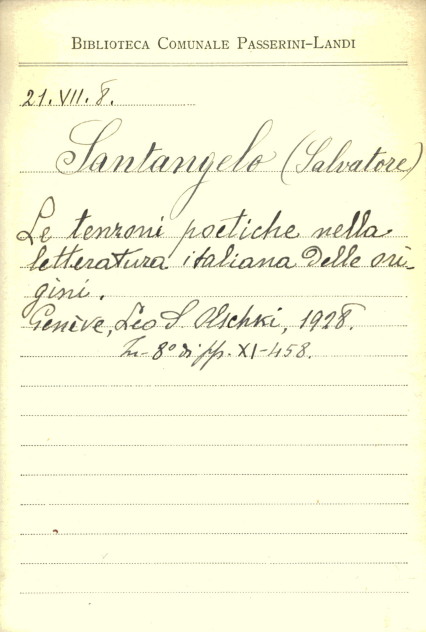 BIBLIOTECA COMUNALE PASSERINI-LANDI
21. VII. 8.
Santangelo (Salvatore)
Le tenzoni poetiche nella
letteratura italiana delle ori-
gini.
Genève, Leo S. Olschki, 1928.
In-8º di pp. XI-458.